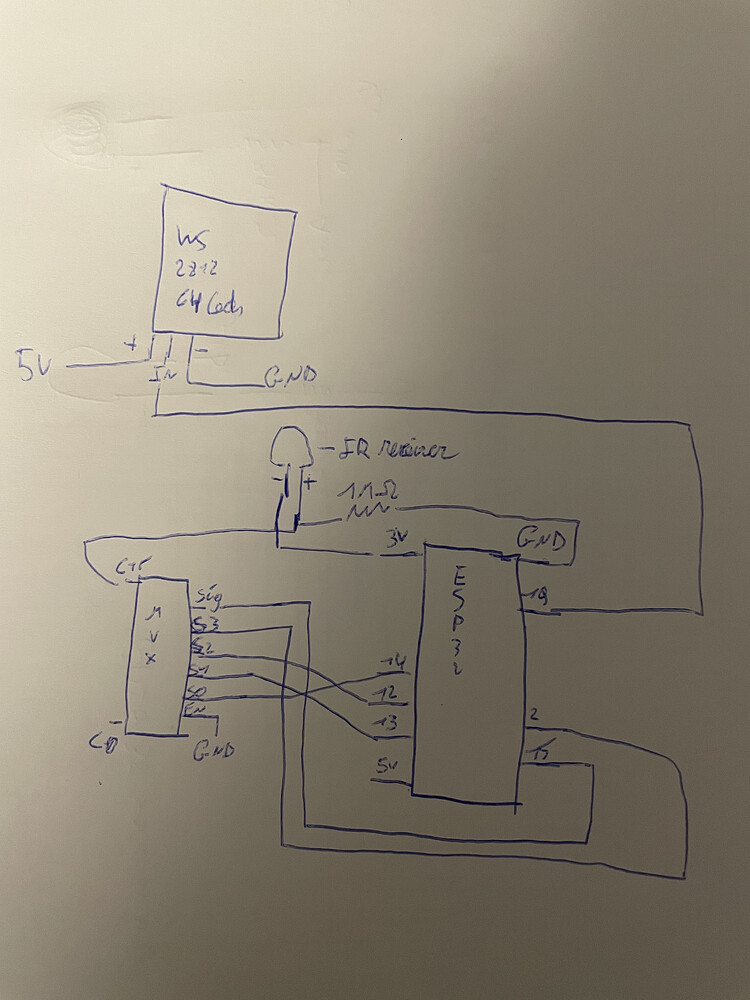 WS
2812
64 Leds
+
-
5V
IN
GND
- IR receiver
- +
3V
GND
C15
ESP32
MUX
Sig
S3
S2
S1
S0
EN
GND
C0
14
12
13
5V
2
15